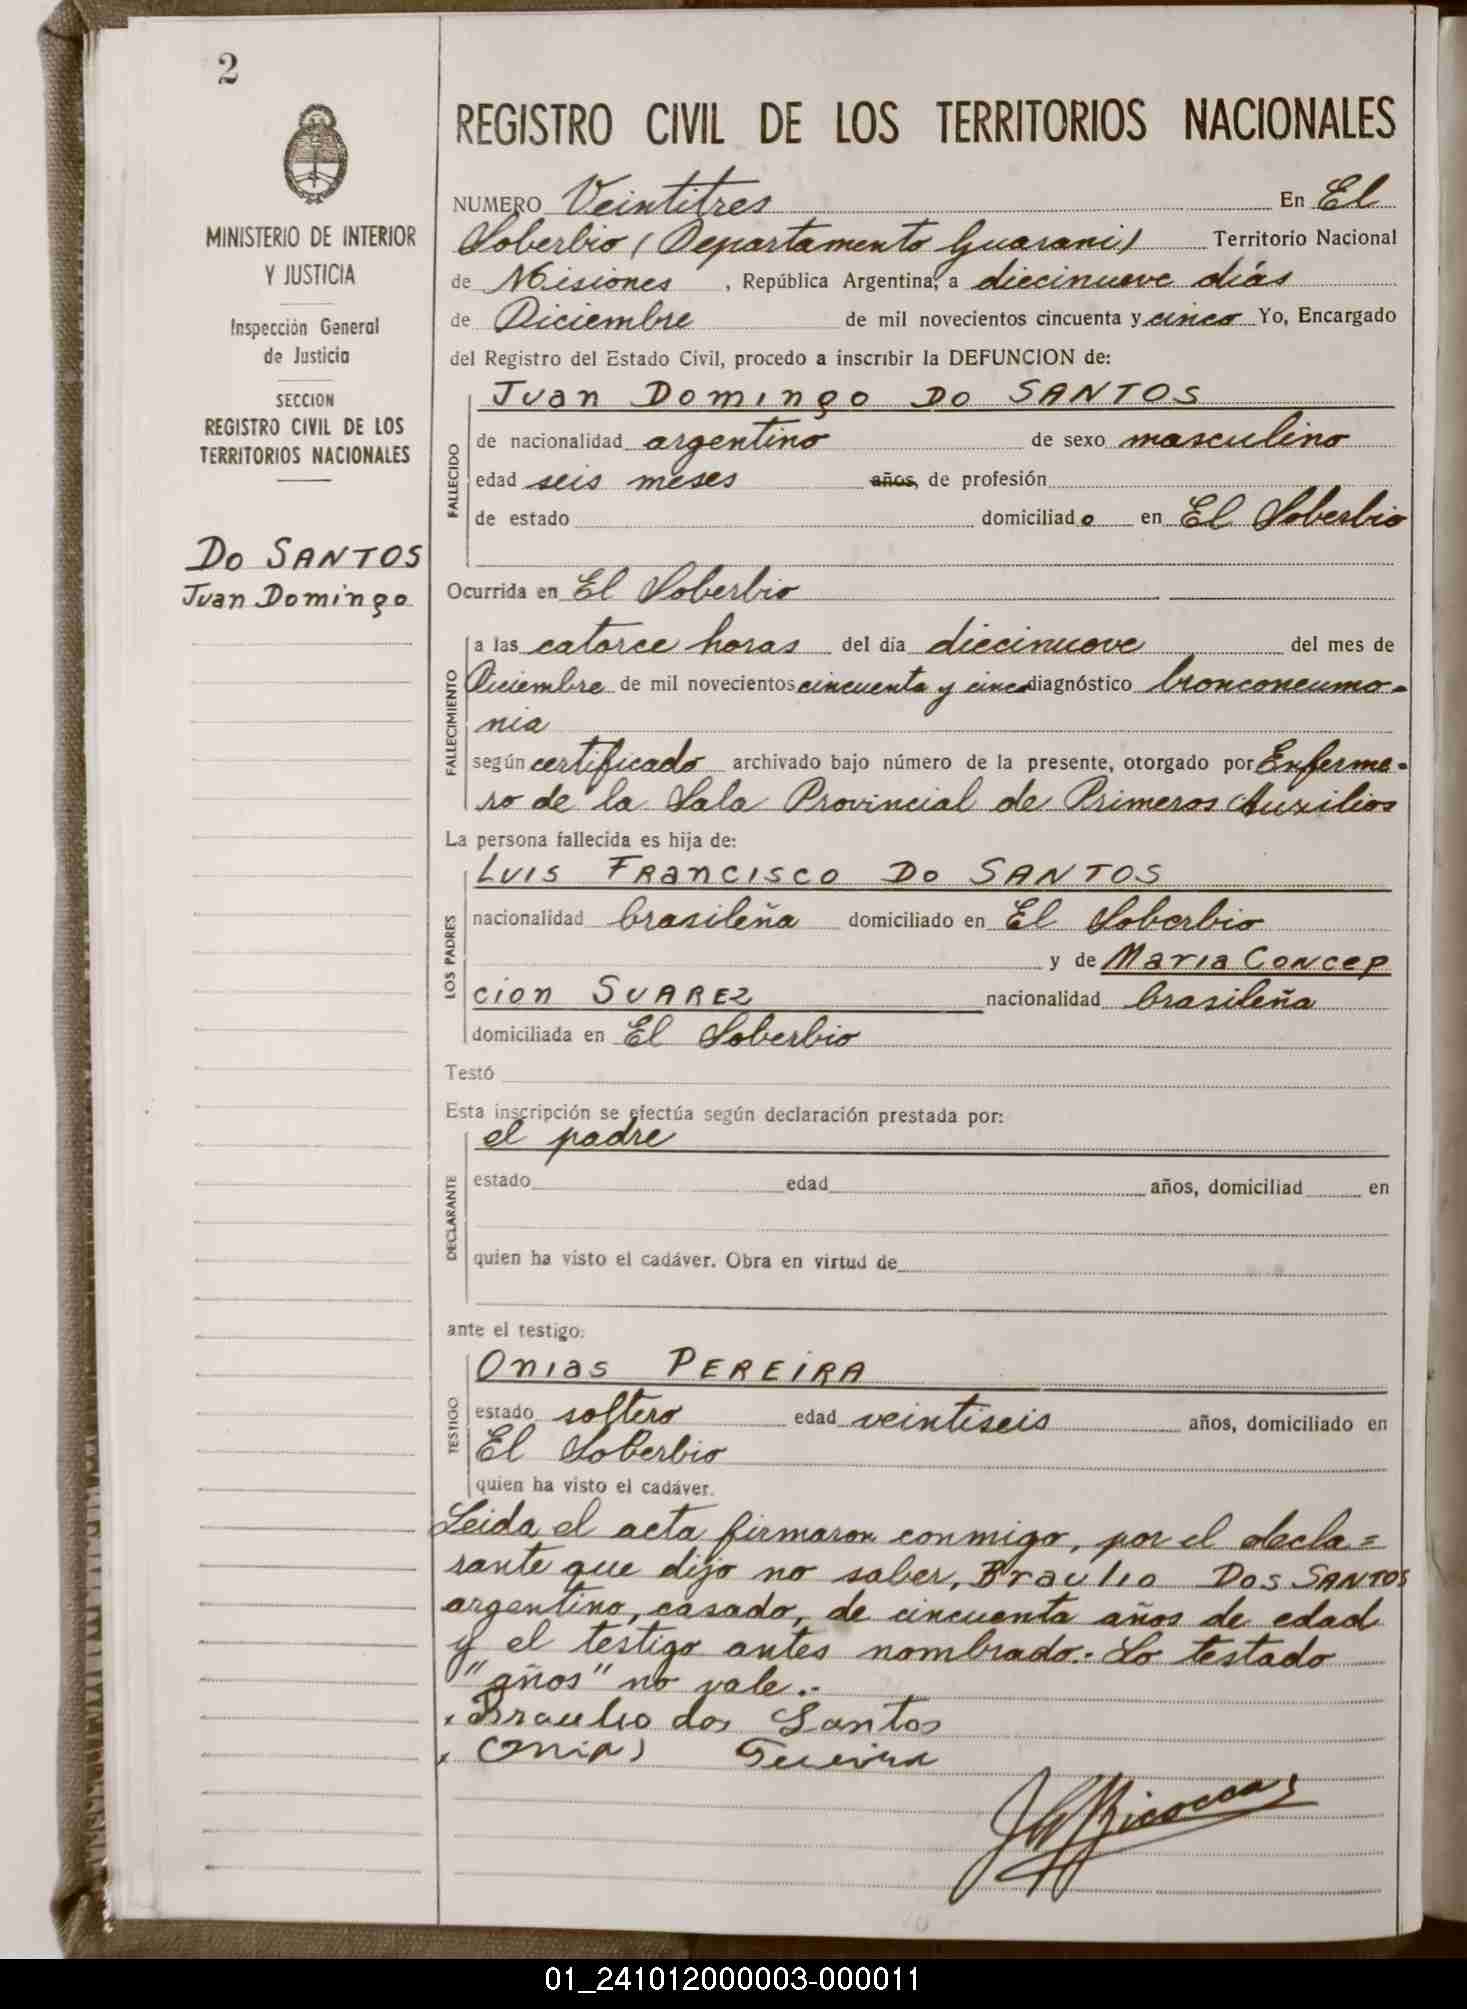 2
MINISTERIO DE INTERIOR
Y JUSTICIA
Inspección General
de Justicia
SECCION
REGISTRO CIVIL DE LOS
TERRITORIOS NACIONALES
DO SANTOS
Juan Domingo
REGISTRO CIVIL DE LOS TERRITORIOS NACIONALES
NUMERO Veintitres En El
Soberbio (Departamento Guarani) Territorio Nacional
de Misiones, República Argentina, a diecinueve días
de Diciembre de mil novecientos cincuenta y cinco Yo, Encargado
del Registro del Estado Civil, procedo a inscribir la DEFUNCION de:
FALLECIDO
Juan Domingo DO SANTOS
de nacionalidad argentino de sexo masculino
edad seis meses años, de profesión
de estado domiciliado en El Soberbio
Ocurrida en El Soberbio
FALLECIMIENTO
a las catorce horas del día diecinueve del mes de
Diciembre de mil novecientos cincuenta y cinco diagnóstico bronconeumo-
nia
según certificado archivado bajo número de la presente, otorgado por Enferme-
ro de la Sala Provincial de Primeros Auxilios
La persona fallecida es hija de:
LOS PADRES
Luis Francisco DO SANTOS
nacionalidad brasileña domiciliado en El Soberbio
y de Maria Concep
cion SUAREZ nacionalidad brasileña
domiciliada en El Soberbio
Testó
Esta inscripción se efectúa según declaración prestada por:
DECLARANTE
el padre
estado edad años, domiciliad en
quien ha visto el cadáver. Obra en virtud de
ante el testigo:
TESTIGO
Onias PEREIRA
estado soltero edad veintiseis años, domiciliado en
El Soberbio
quien ha visto el cadáver.
Leida el acta firmaron conmigo, por el decla=
rante que dijo no saber, Braulio DOS SANTOS
argentino, casado, de cincuenta años de edad
y el testigo antes nombrado.- Lo testado
"años" no vale.-
Braulio dos Santos
Onias
01_241012000003-000011